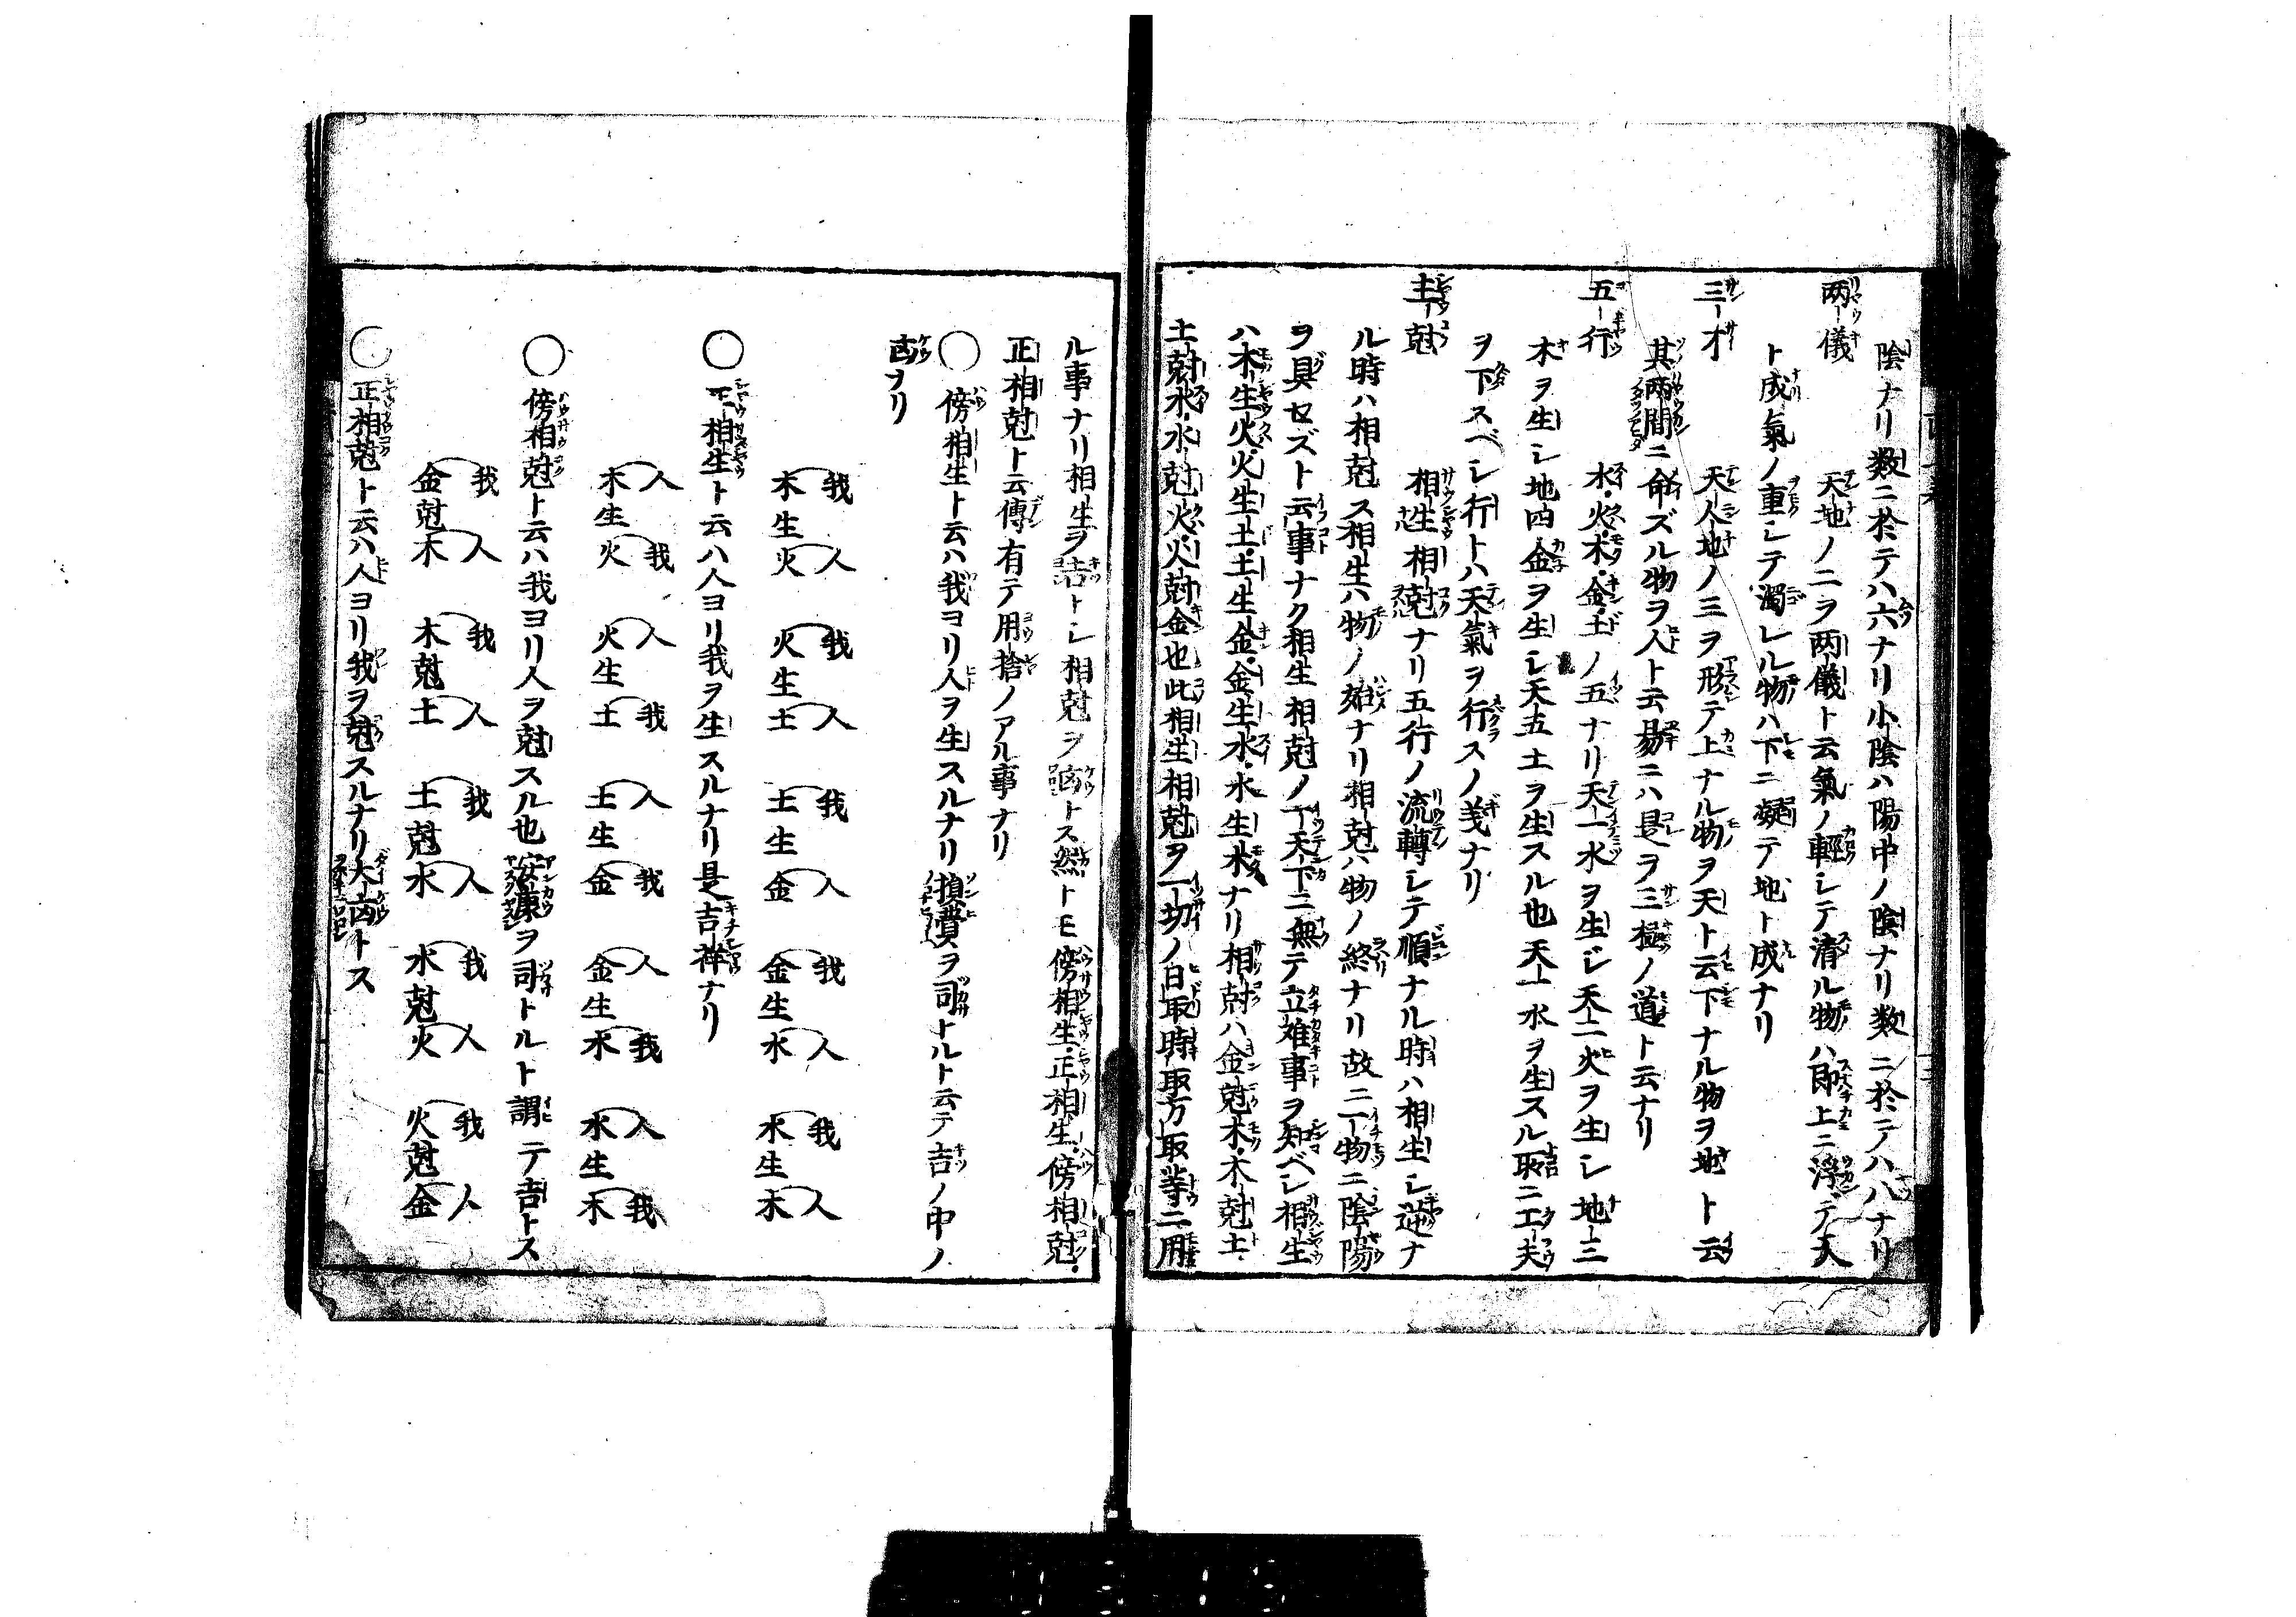 陰ナリ数ニ於テハ六ナリ小陰ハ陽中ノ陰ナリ数ニ於テハ八ナリ
両儀 天地ノ二ヲ両儀ト云氣ノ軽シテ清ル物ハ即上ニ浮デ天
ト成氣ノ重シテ濁レル物ハ下ニ凝テ地ト成ナリ
三才 天人地ノ三ヲ形テ上ナル物ヲ天ト云下ナル物ヲ地ト云
其両間ニ命ズル物ヲ人ト云易ニハ是ヲ三極ノ道ト云ナリ
五行 水・火・木・金・土ノ五ナリ天一水ヲ生ジ天二火ヲ生シ地三
木ヲ生シ地四金ヲ生シ天五土ヲ生スル也天一水ヲ生スル取ニ工夫
ヲ下スベシ行トハ天氣ヲ行スノ義ナリ
生尅 相生相尅ナリ五行ノ流轉シテ順ナル時ハ相生シ逆ナ
ル時ハ相尅ス相生ハ物ノ始ナリ相尅ハ物ノ終ナリ故ニ一物ニ陰陽
ヲ具セズト云事ナク相生相尅ノ一天下ニ無テ立難事ヲ知ベシ相生
ハ木生火・火生土・土生金・金生水・水生木ナリ相尅ハ金尅木・木尅土・
土尅水・水尅火・火尅金也此相生相尅ヲ一切ノ日取時取方取等ニ用
ル事ナリ相生ヲ吉トシ相尅ヲ凶トス然トモ傍相生・正相生・傍相尅・
正相尅ト云傳有テ用捨ノアル事ナリ
○ 傍相生ト云ハ我ヨリ人ヲ生スルナリ損費ヲ司トルト云テ吉ノ中ノ
凶ヲリ
我 人 我 人 我 人 我 人 我 人
木生火 火生土 土生金 金生水 水生木
○ 正相生ト云ハ人ヨリ我ヲ生スルナリ是吉祥ナリ
人 我 人 我 人 我 人 我 人 我
木生火 火生土 土生金 金生水 水生木
○ 傍相尅ト云ハ我ヨリ人ヲ尅スル也安康ヲ司トルト謂テ吉トス
我 人 我 人 我 人 我 人 我 人
金尅木 木尅土 土尅水 水尅火 火尅金
○ 正相尅ト云ハ人ヨリ我ヲ尅スルナリ大凶トス